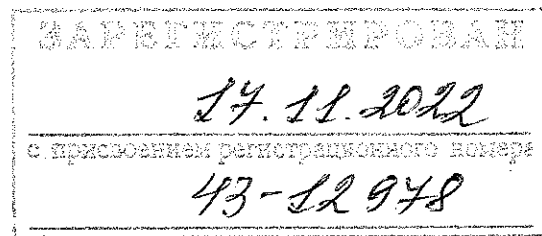 ЗАРЕГИСТРИРОВАН
17.11.2022
с присвоением регистрационного номера
43-12978